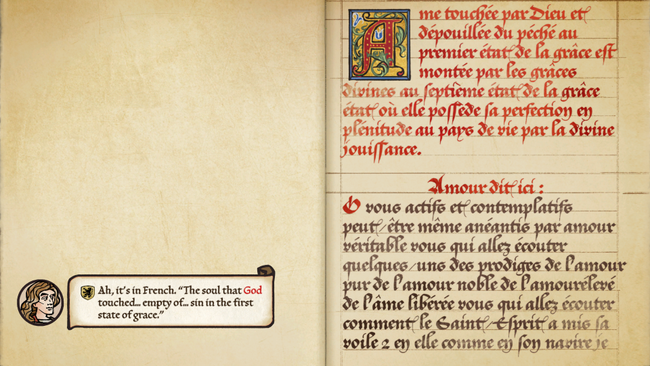 Ah, it's in French. “The soul that God
touched... empty of... sin in the first
state of grace.”
Ame touchée par Dieu et
dépouillée du péché au
premier état de la grâce est
montée par les grâces
divines au septième état de la grâce
état où elle possede sa perfection en
plénitude au pays de vie par la divine
jouissance.
Amour dit ici :
O vous actifs et contemplatifs
peut/être même anéantis par amour
véritable vous qui allez écouter
quelques/uns des prodiges de l'amour
pur de l'amour noble de l'amourélevé
de l'âme libérée vous qui allez écouter
comment le Saint/Esprit a mis sa
voile 2 en elle comme en son navire je